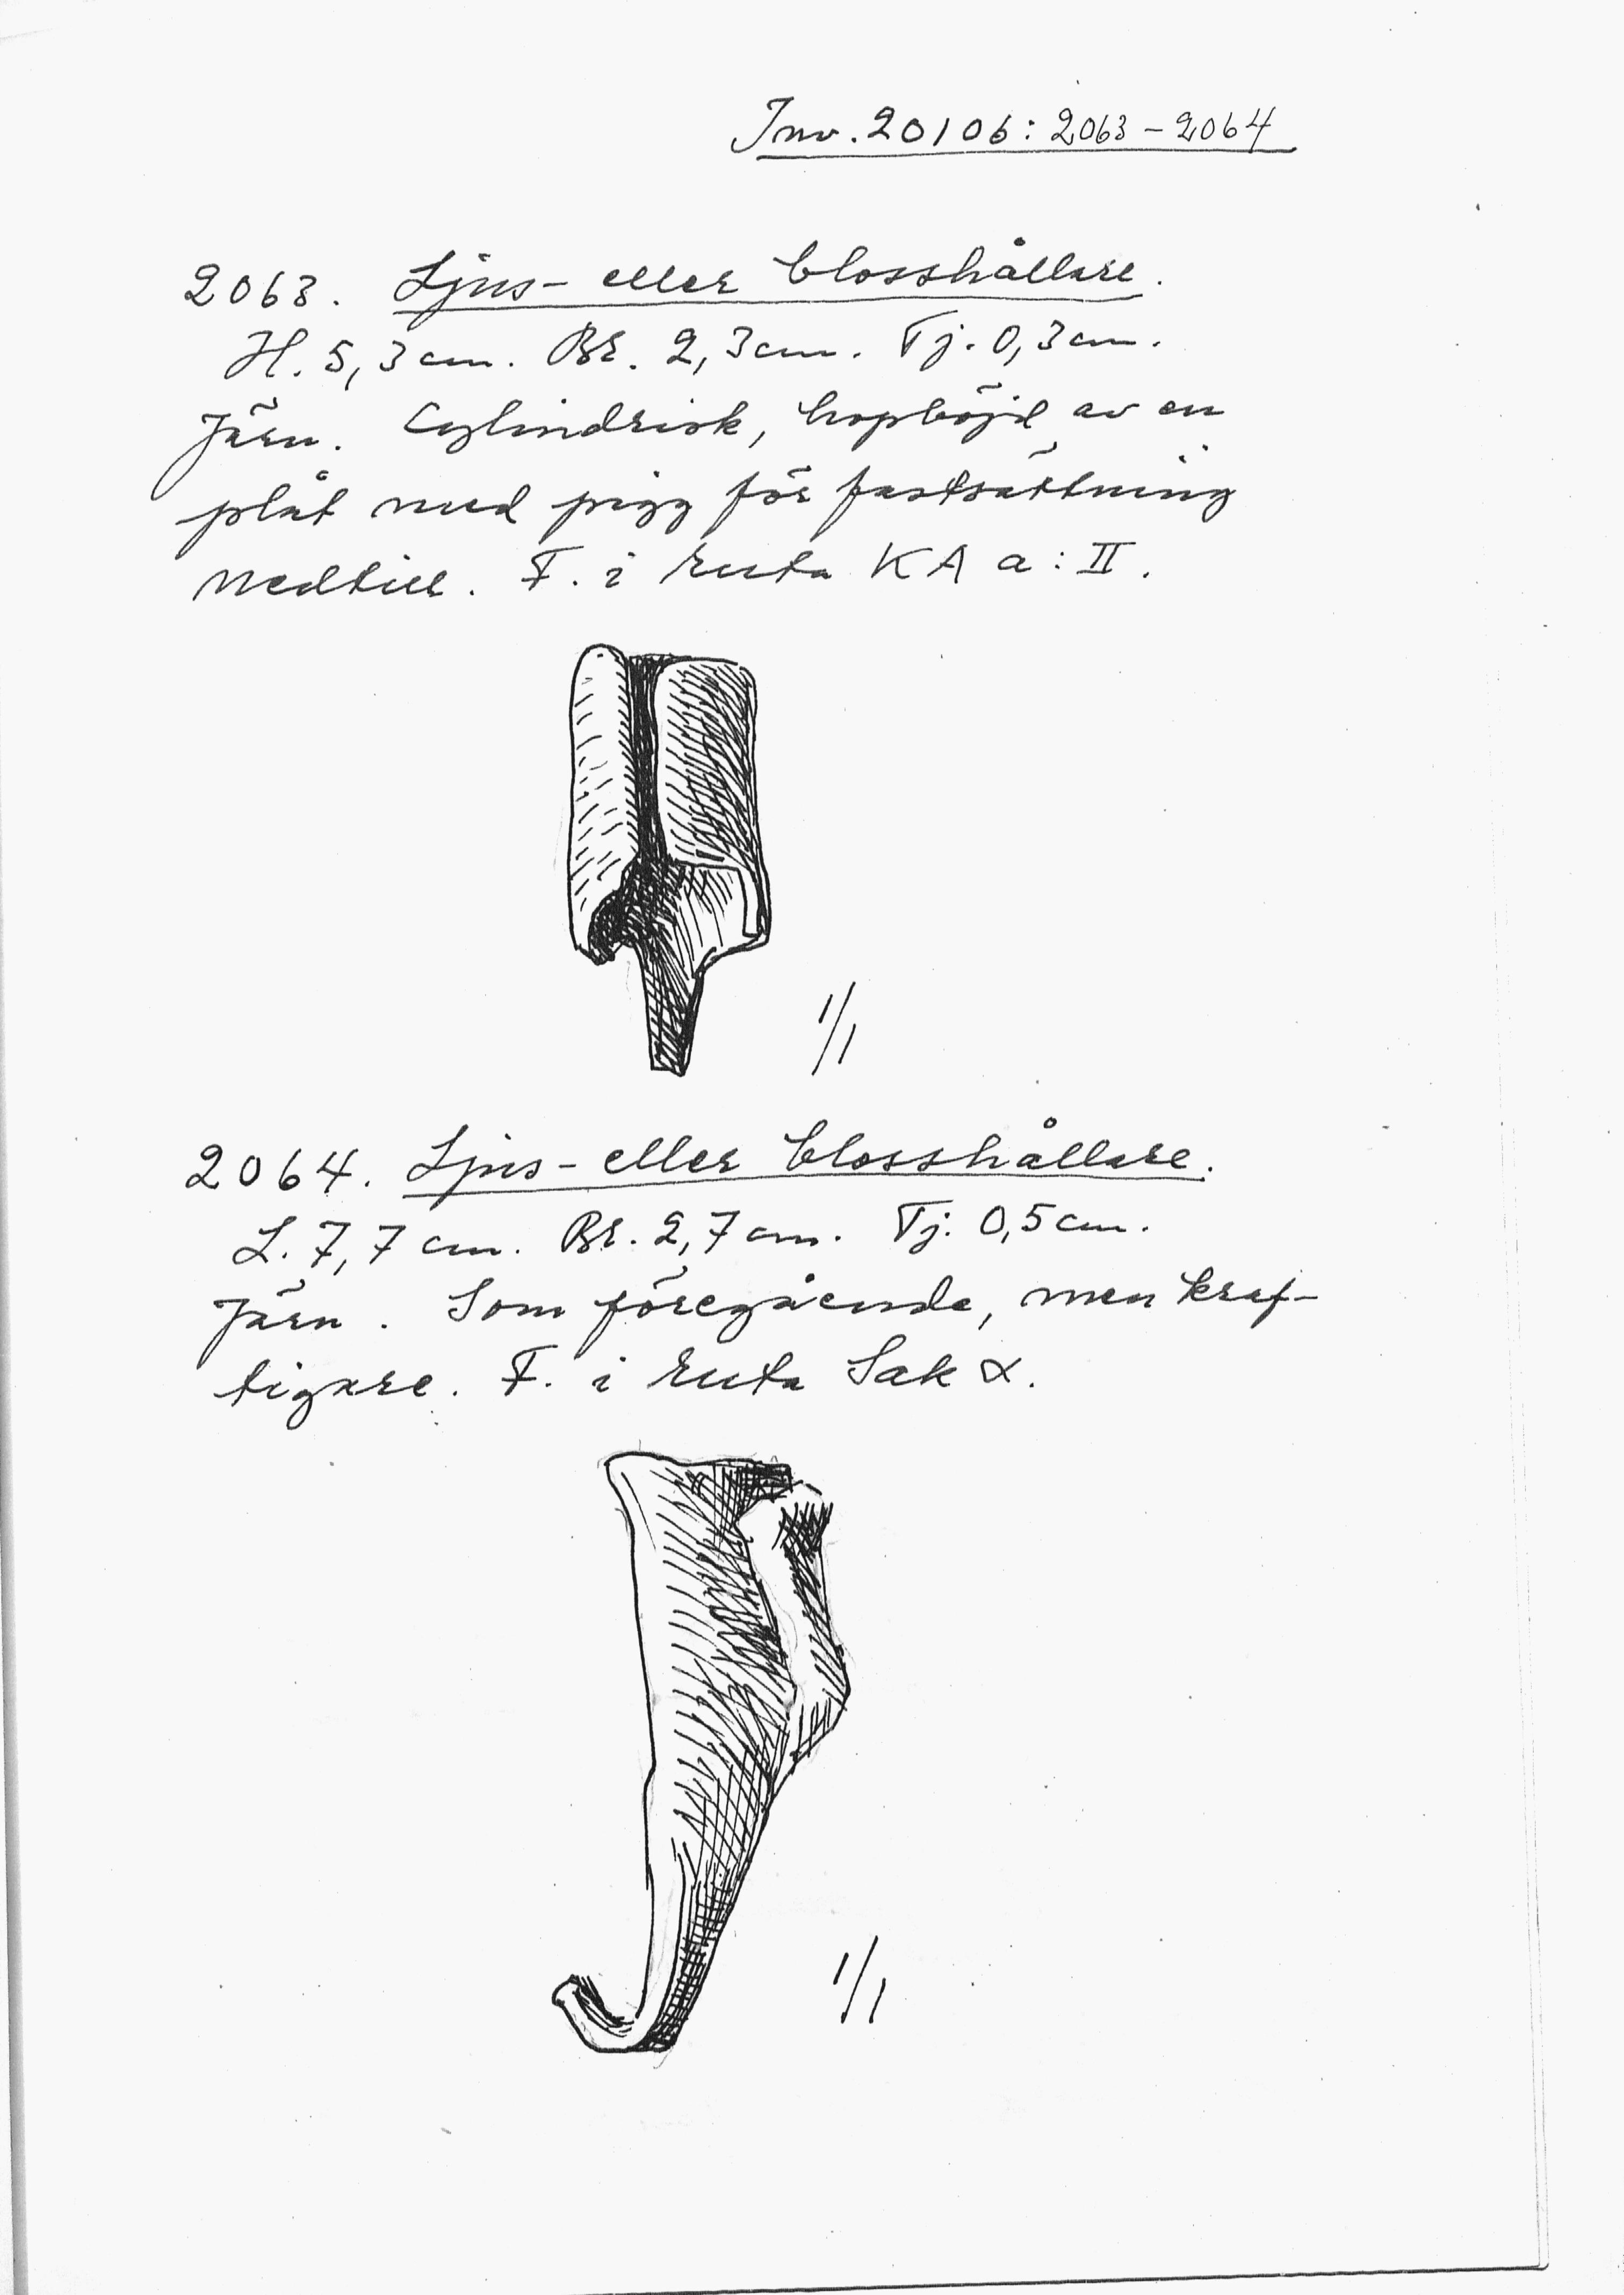 Inv. 20106: 2063-2064
2063. Ljus- eller blosshållare.
H. 5,3 cm. Br. 2,3 cm. Tj. 0,3 cm.
Järn. Cylindrisk, hopböjd av en
plåt med pigg för fastsättning
nedtill. F. i ruta KA a: II.
1/1
2064. Ljus- eller blosshållare.
L. 7,7 cm. Br. 2,7 cm. Tj. 0,5 cm.
Järn. Som föregående, men kraf-
tigare. F. i ruta Sak α.
1/1